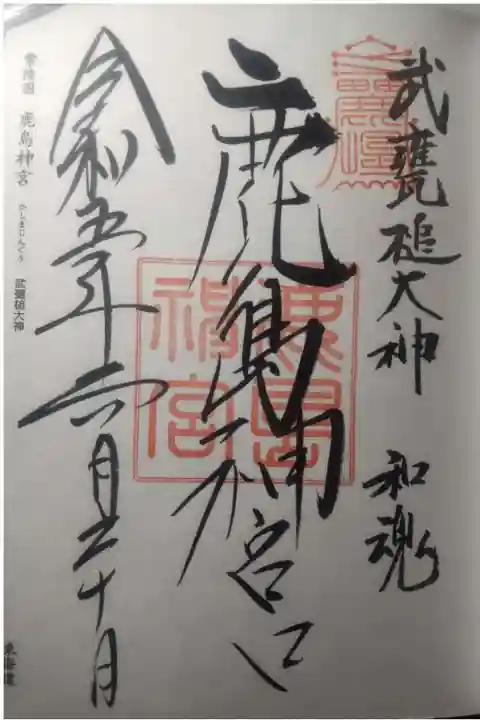 武甕槌大神 和魂
鹿島神宮
鹿島神宮
令和五年六月三十日
常陸国 鹿島神宮 かしまじんぐう 武甕槌大神
東海道